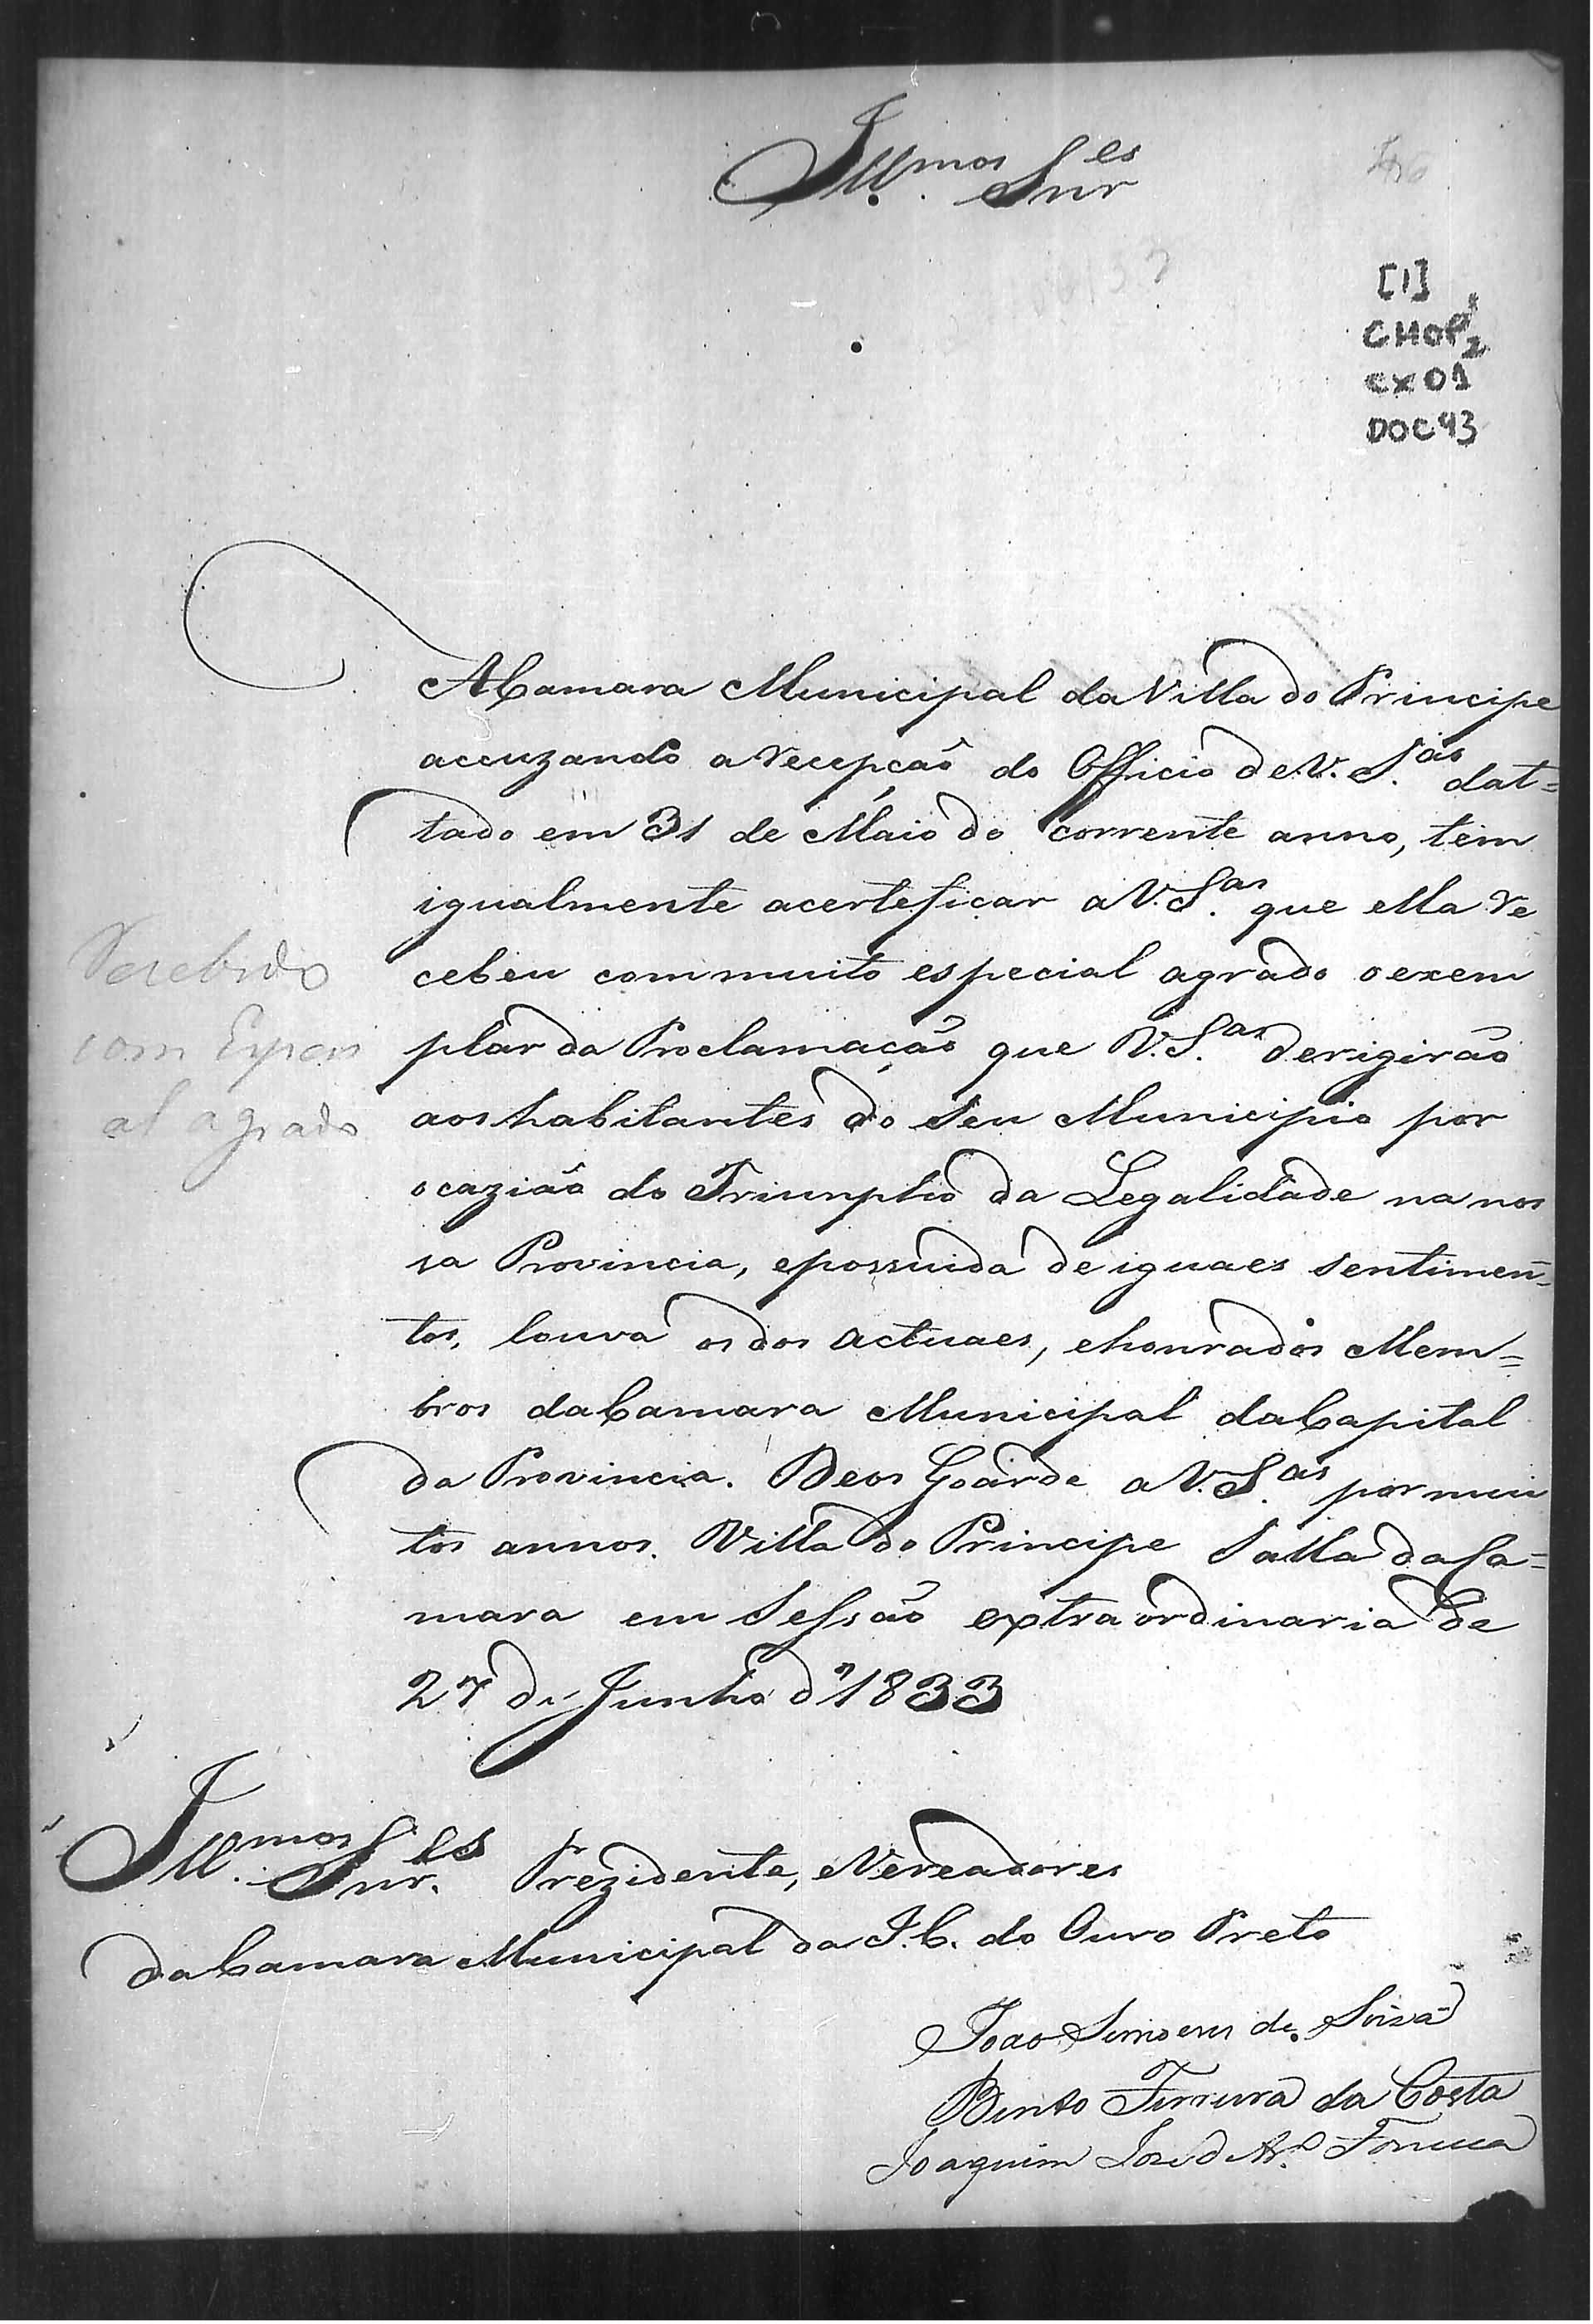 Illmos Snres
[1]
CMOP
CX01
DOC93
A Camara Municipal da Villa do Principe
accuzando a recepção do Officio de V. S.as dat=
tado em 31 de Maio do corrente anno, tem
igualmente acerteficar a V. S.as que ella re
cebeu com muito especial agrado o exem
plar da Proclamação que V. S.as derigirão
aos habitantes do seu Municipio por
ocazião do Triumpho da Legalidade na nos
sa Provincia, e possuida de iguaes sentimen=
tos, louva os dos actuaes, e honrados Mem=
bros da Camara Municipal da Capital
da Provincia. Deos Goarde a V. S.as por mui
tos annos. Villa do Principe Salla da Ca=
mara em Sessão extraordinaria de
27 de Junho d'1833
Recebido
com Especi
al agrado
Illmos Snres Prezidente, e Vereadores
da Camara Municipal da I. C. do Ouro Preto
João Simoens de Souza
Bento Ferreira da Costa
Joaquim Jose d Ar.o Fonseca